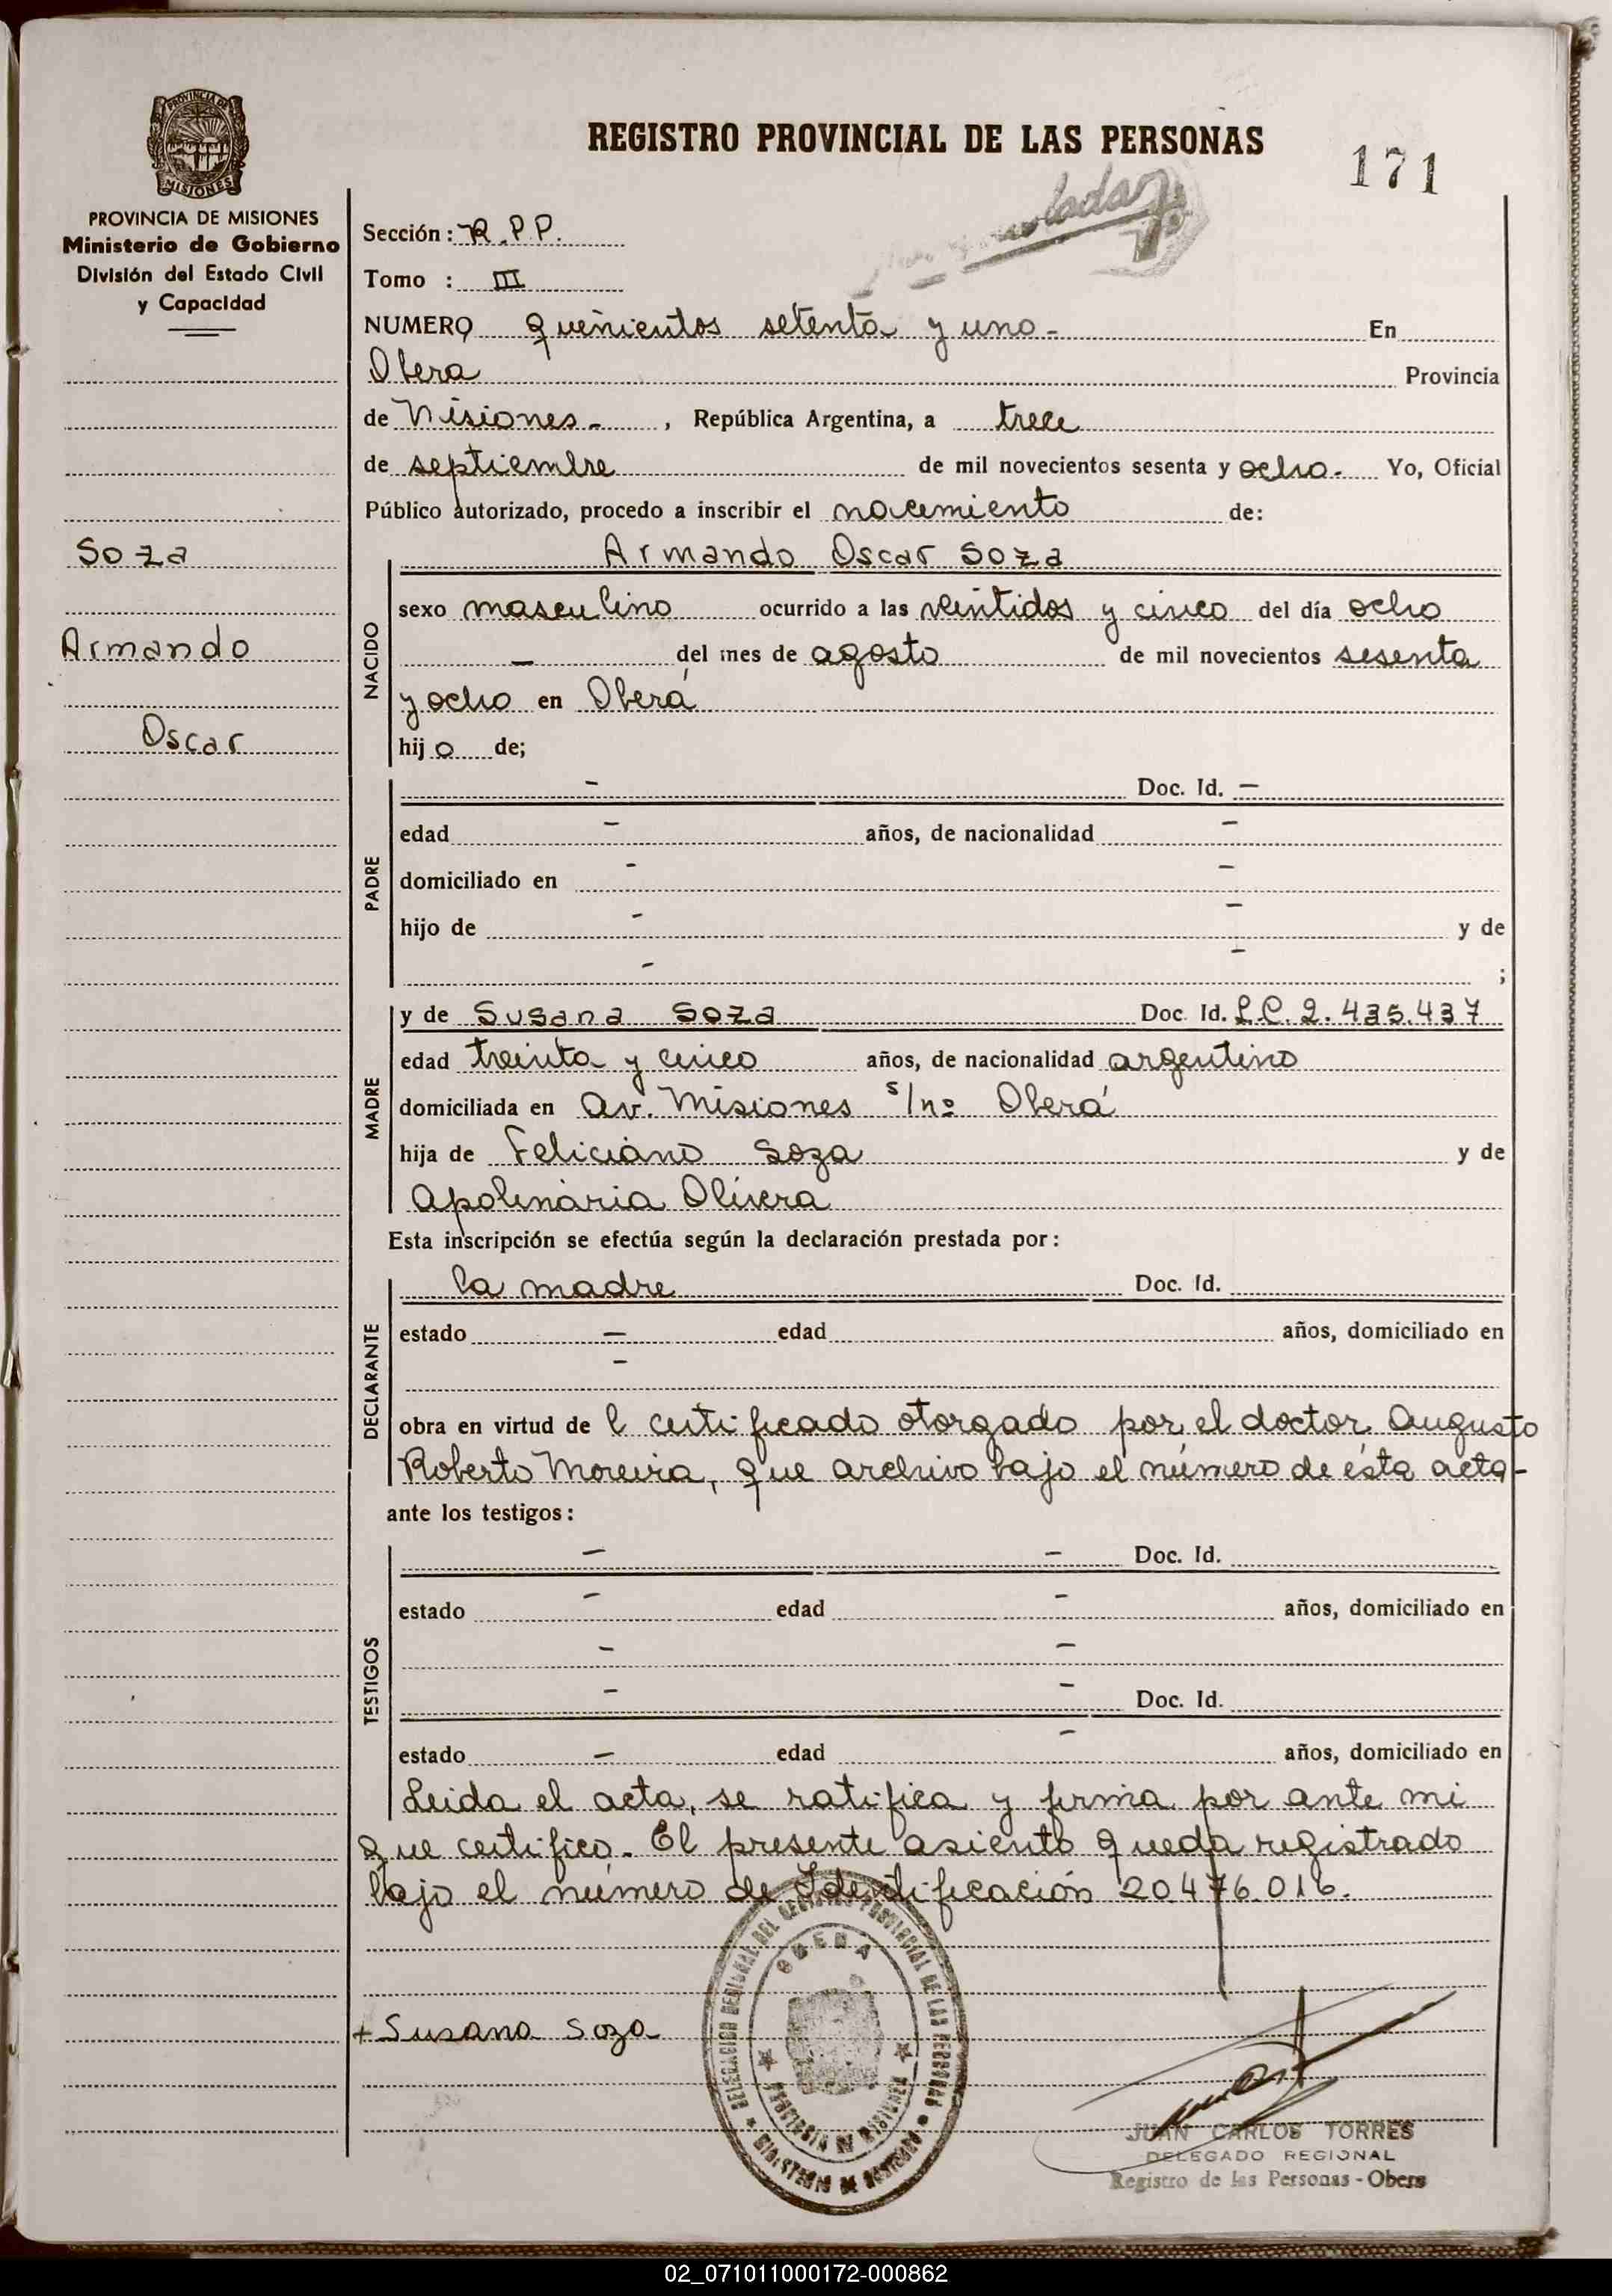 PROVINCIA DE
MISIONES
PROVINCIA DE MISIONES
Ministerio de Gobierno
División del Estado Civil
y Capacidad
Soza
Armando
Oscar
REGISTRO PROVINCIAL DE LAS PERSONAS
171
Sección: R.P.P.
Tomo : III
NUMERO queñientos setenta y uno - En
Obera Provincia
de Misiones - , República Argentina, a trece
de septiembre de mil novecientos sesenta y ocho. Yo, Oficial
Público autorizado, procedo a inscribir el nacemiento de:
Armando Oscar Soza
NACIDO
sexo masculino ocurrido a las veintidos y cinco del día ocho
- del mes de agosto de mil novecientos sesenta
y ocho en Oberá
hijo de;
PADRE
- Doc. Id. -
edad - años, de nacionalidad -
domiciliado en - -
hijo de - - y de
- - ;
MADRE
y de Susana Soza Doc. Id. L.C. 2.435.437
edad treinta y cinco años, de nacionalidad argentino
domiciliada en Av. Misiones s/nº Oberá
hija de Feliciano Soza y de
Apolinaria Olivera
Esta inscripción se efectúa según la declaración prestada por:
DECLARANTE
la madre Doc. Id.
estado - edad años, domiciliado en
-
obra en virtud de l certificado otorgado por el doctor Augusto
Roberto Moreira, que archivo bajo el número de ésta acta-
ante los testigos:
TESTIGOS
- - Doc. Id.
estado - edad - años, domiciliado en
- -
- - Doc. Id.
estado - edad - años, domiciliado en
Leida el acta, se ratifica y firma por ante mi
que certifico. El presente asiento queda registrado
bajo el número de Identificación 20.476.016.
+ Susana Soza
DELEGACION REGIONAL DEL REGISTRO PROVINCIAL DE LAS PERSONAS
OBERA
PROVINCIA DE MISIONES
MINISTERIO DE GOBIERNO
JUAN CARLOS TORRES
DELEGADO REGIONAL
Registro de las Personas - Obera
02_071011000172-000862